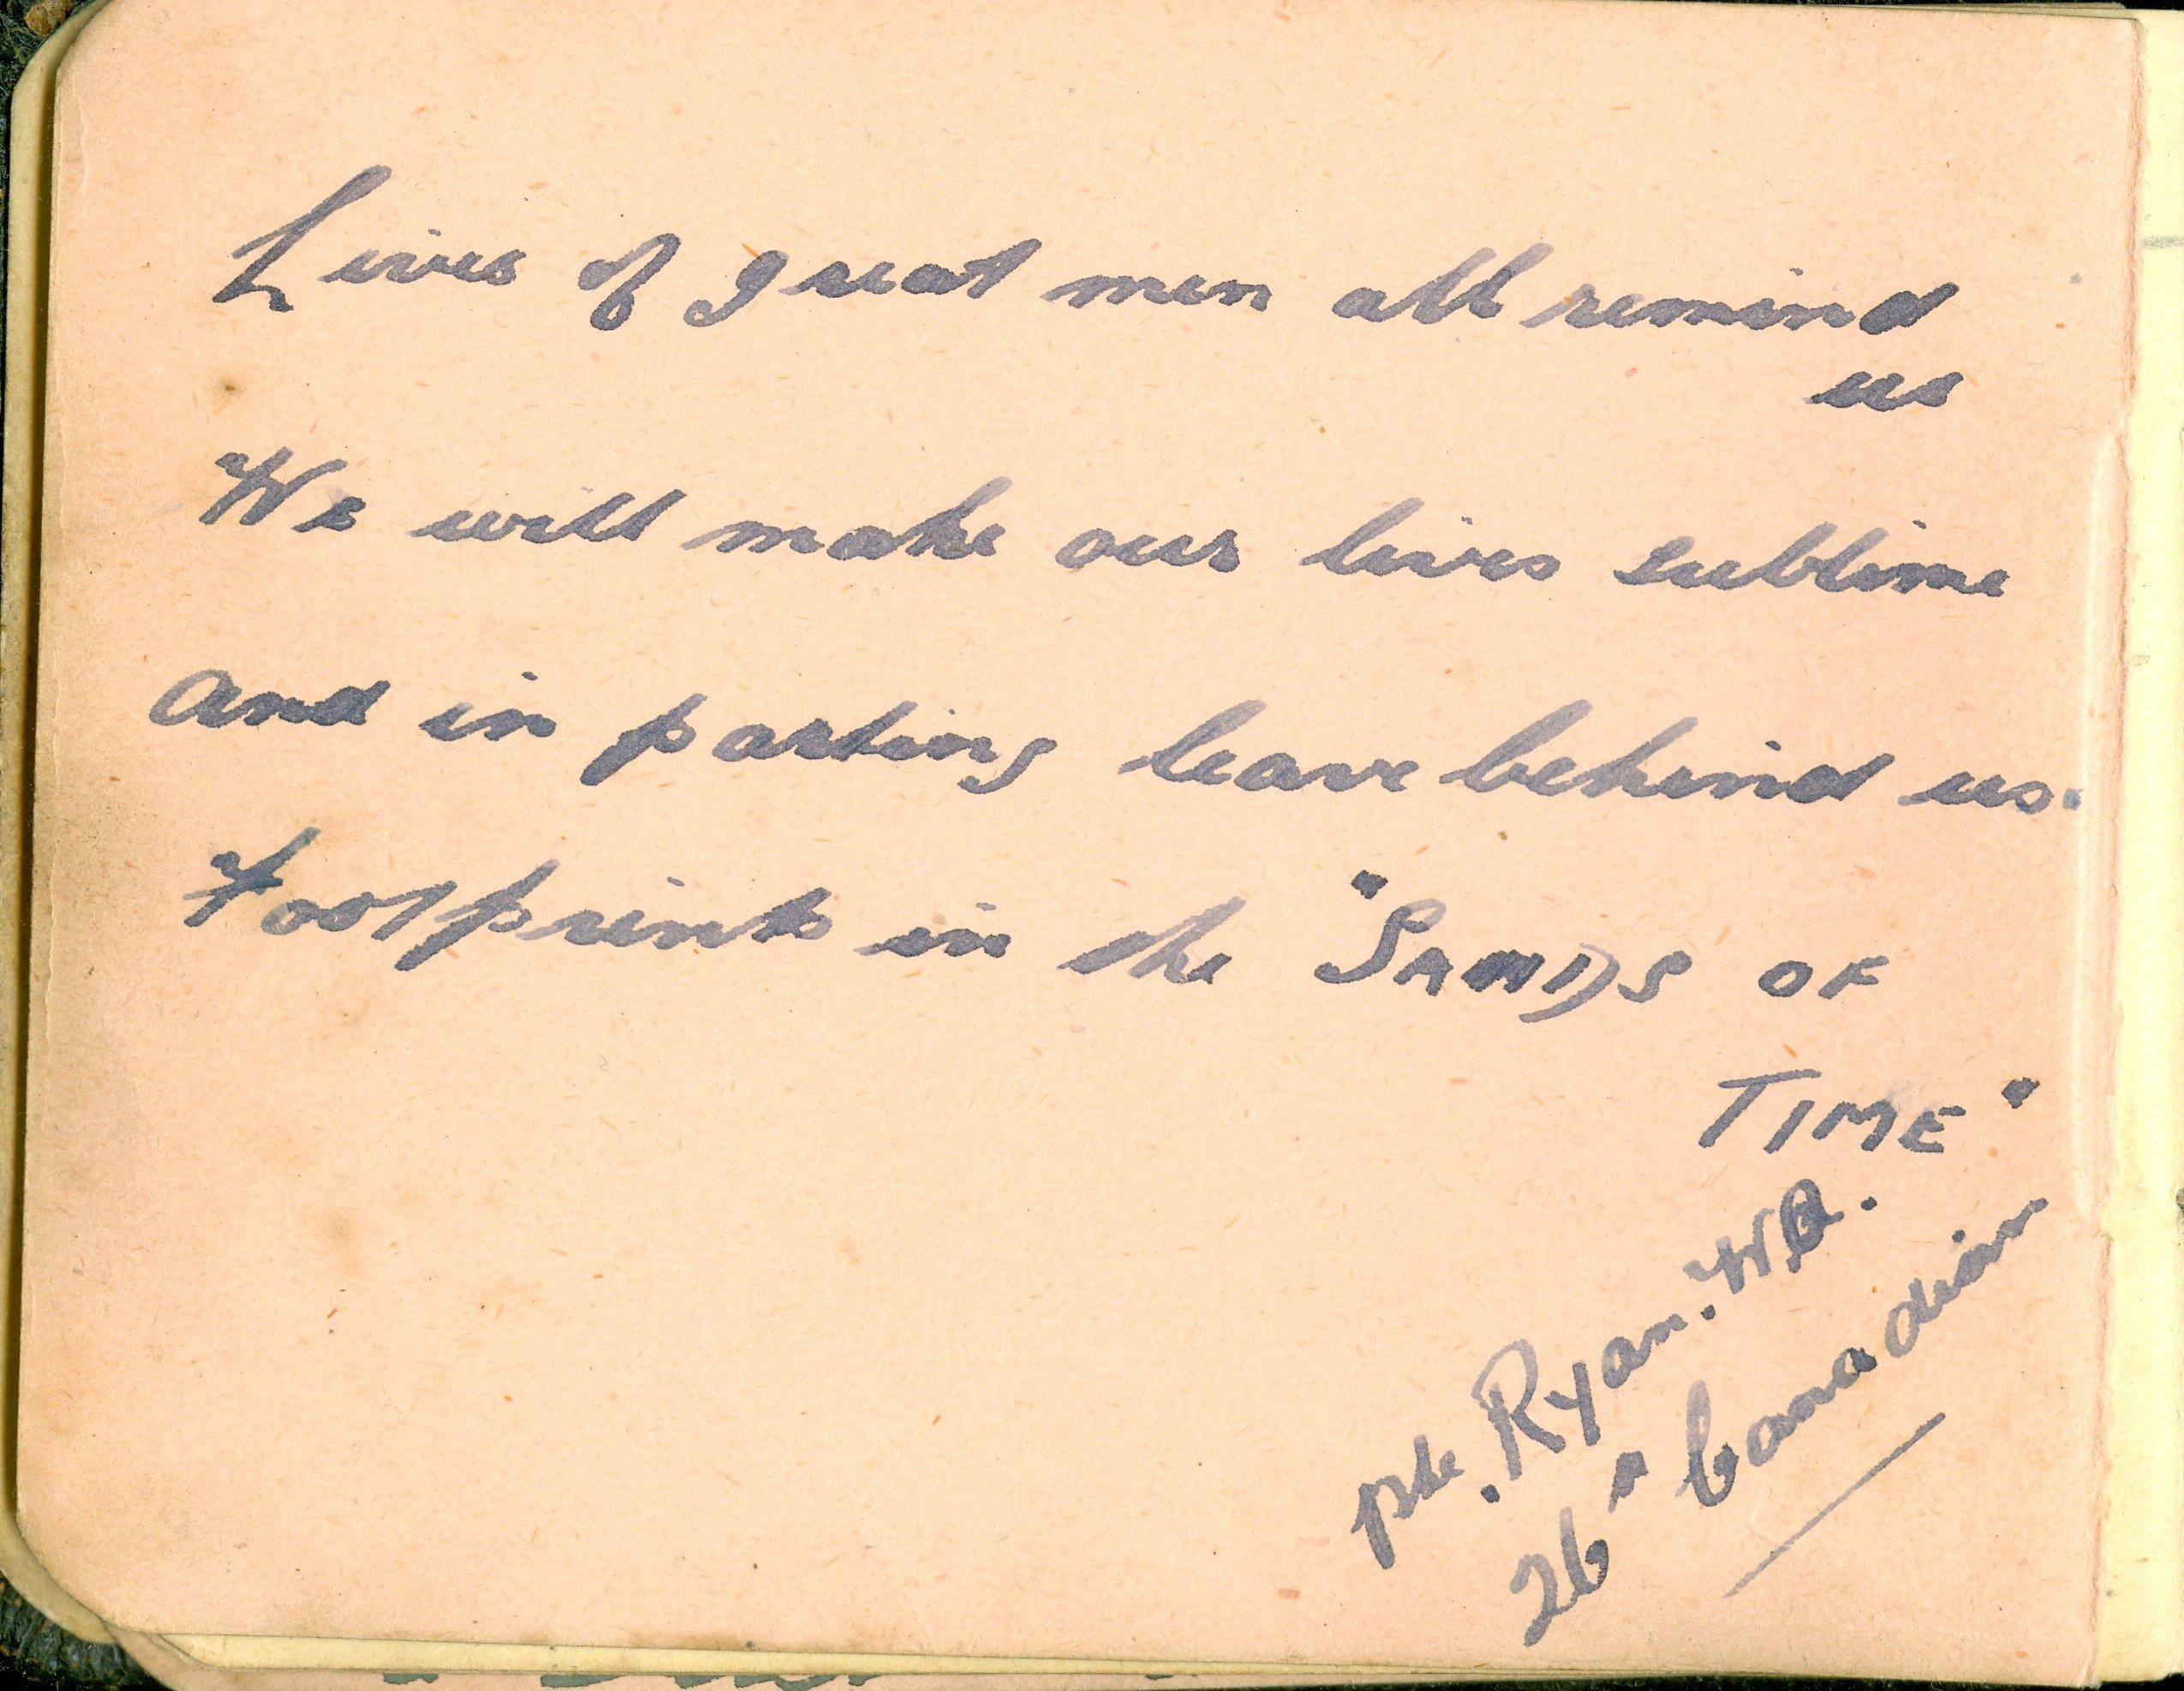 Lives of great men all remind
us
We will make our lives sublime
and in parting leave behind us.
Footprints in the "SANDS OF
TIME"
pte. Ryan. W.
26" Canadian